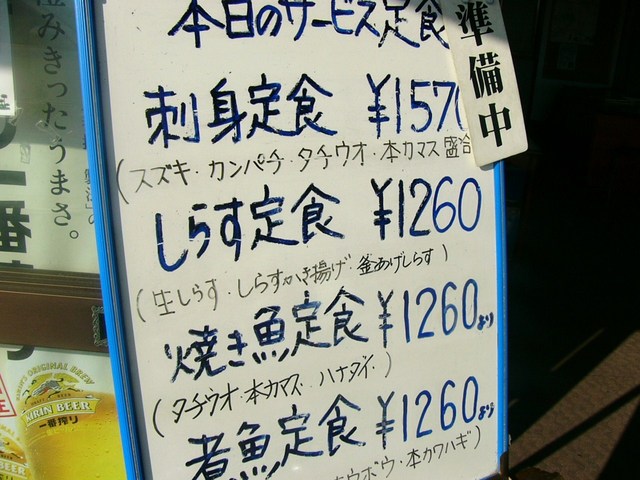 本日のサービス定食
準備中
刺身定食 ¥1570
(スズキ・カンパチ・タチウオ・本カマス盛合
しらす定食 ¥1260
(生しらす・しらすかき揚げ・釜あげしらす)
焼き魚定食 ¥1260より
(タチウオ・本カマス・ハナダイ・)
煮魚定食 ¥1260より
ウボウ・本カワハギ)
みきったうまさ。
一番
ORIGINAL BREW
KIRIN BEER
一番搾り
BEER